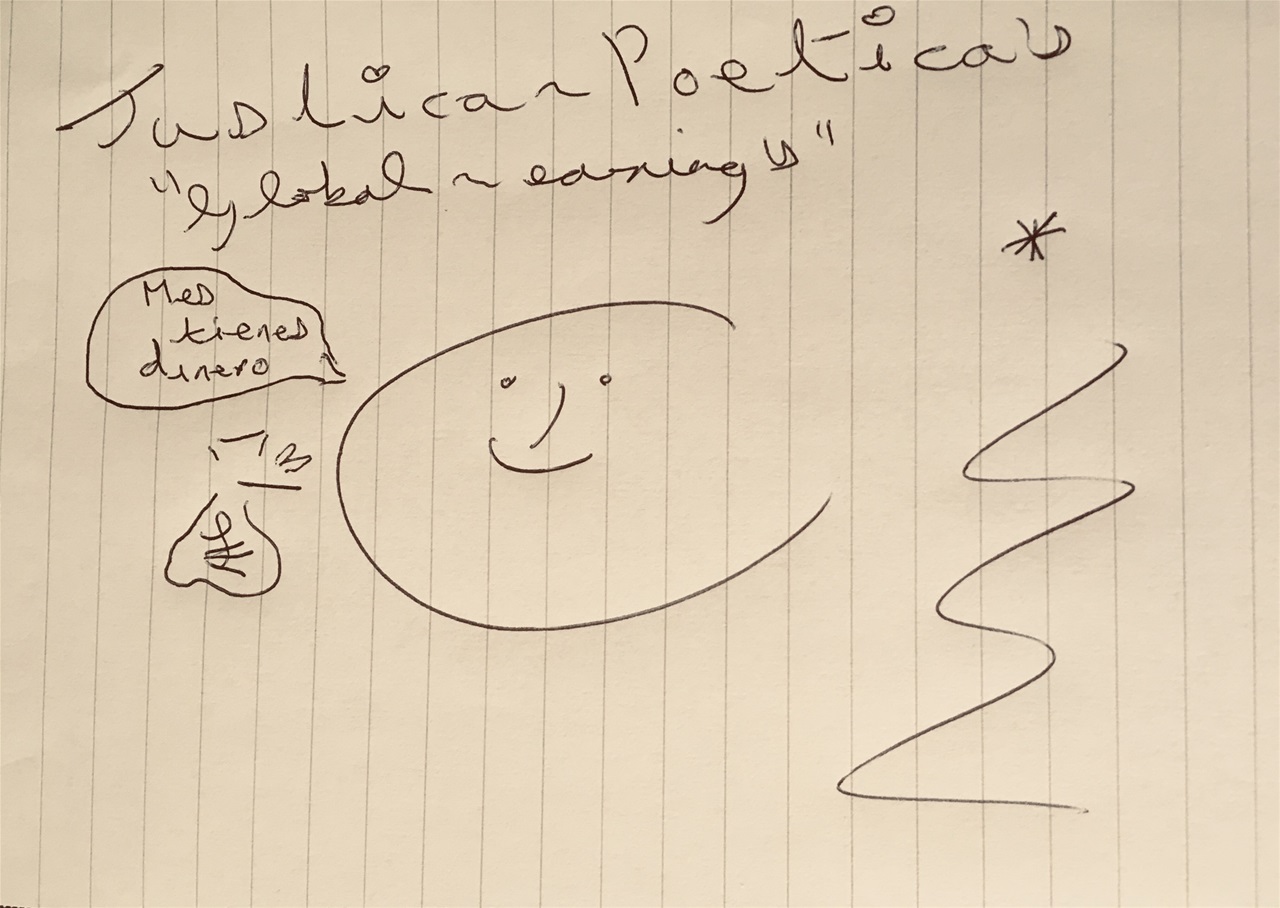 Justica~Poetica's
"Global~earning's"
Mes
tienes
dinero
£